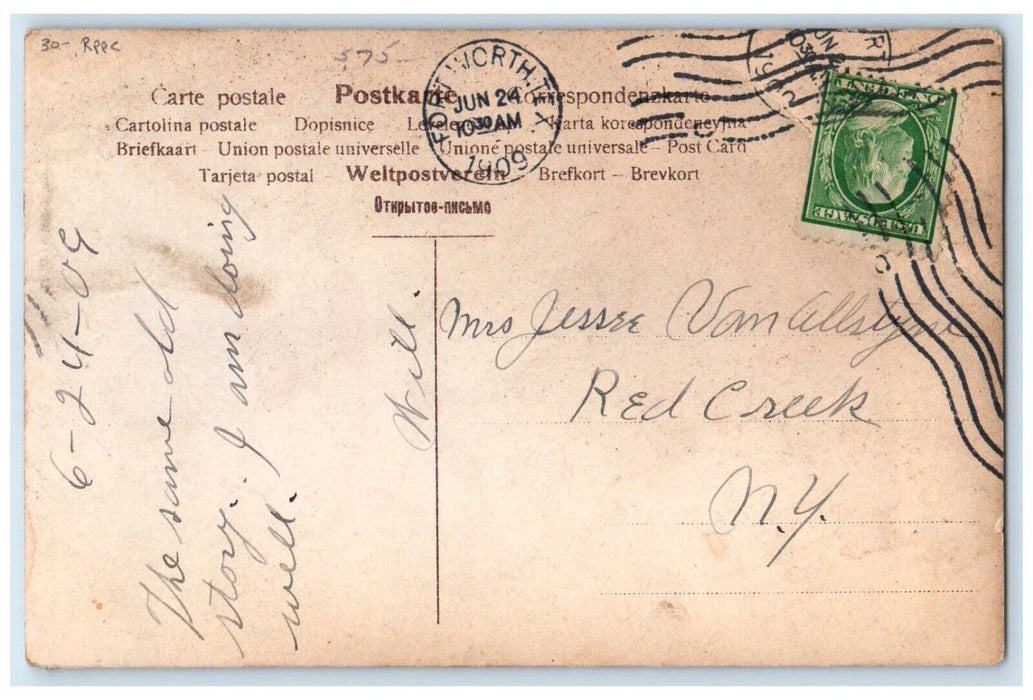 30- Rppc
575
FORT WORTH, TEX.
JUN 24
10 30 AM
1909
Carte postale Postkarte Korrespondenzkarte
Cartolina postale Dopisnice Karta korespondencyjna
Briefkaart – Union postale universelle Unione postale universale – Post Card
Tarjeta postal – Weltpostverein Brefkort – Brevkort
Открытое-письмо
U.S. POSTAGE
ONE CENT
6-24-09
The same old
story. I am doing
well.
Will.
Mrs Jessee Van Allstyne
Red Creek
N.Y.